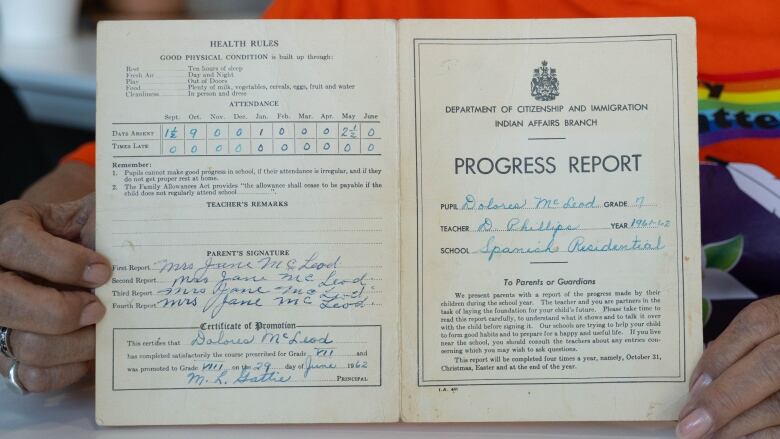 HEALTH RULES
GOOD PHYSICAL CONDITION is built up through:
Rest Ten hours of sleep
Fresh Air Day and Night
Play Out of Doors
Food Plenty of milk, vegetables, cereals, eggs, fruit and water
Cleanliness In person and dress
ATTENDANCE
Sept. Oct. Nov. Dec. Jan. Feb. Mar. Apr. May June
DAYS ABSENT 1½ 9 0 0 1 0 0 0 2½ 0
TIMES LATE 0 0 0 0 0 0 0 0 0 0
Remember:
1. Pupils cannot make good progress in school, if their attendance is irregular, and if they
do not get proper rest at home.
2. The Family Allowances Act provides "the allowance shall cease to be payable if the
child does not regularly attend school"
TEACHER'S REMARKS
PARENT'S SIGNATURE
First Report Mrs Jane McLeod
Second Report Mrs Jane McLeod
Third Report Mrs Jane McLeod
Fourth Report Mrs Jane McLeod
Certificate of Promotion
This certifies that Dolores McLeod
has completed satisfactorily the course prescribed for Grade VII and
was promoted to Grade VIII on the 29 day of June 1962
M. L. Gattie PRINCIPAL
DEPARTMENT OF CITIZENSHIP AND IMMIGRATION
INDIAN AFFAIRS BRANCH
PROGRESS REPORT
PUPIL Dolores McLeod GRADE 7
TEACHER D. Phillips YEAR 1961-62
SCHOOL Spanish Residential
To Parents or Guardians
We present parents with a report of the progress made by their
children during the school year. The teacher and you are partners in
the task of laying the foundation for your child's future. Please take time to
read this report carefully, to understand what it shows and to talk it over
with the child before signing it. Our schools are trying to help your child
to form good habits and to prepare for a happy and useful life. If you live
near the school, you should consult the teachers about any entries con-
cerning which you may wish to ask questions.
This report will be completed four times a year, namely, October 31,
Christmas, Easter and at the end of the year.